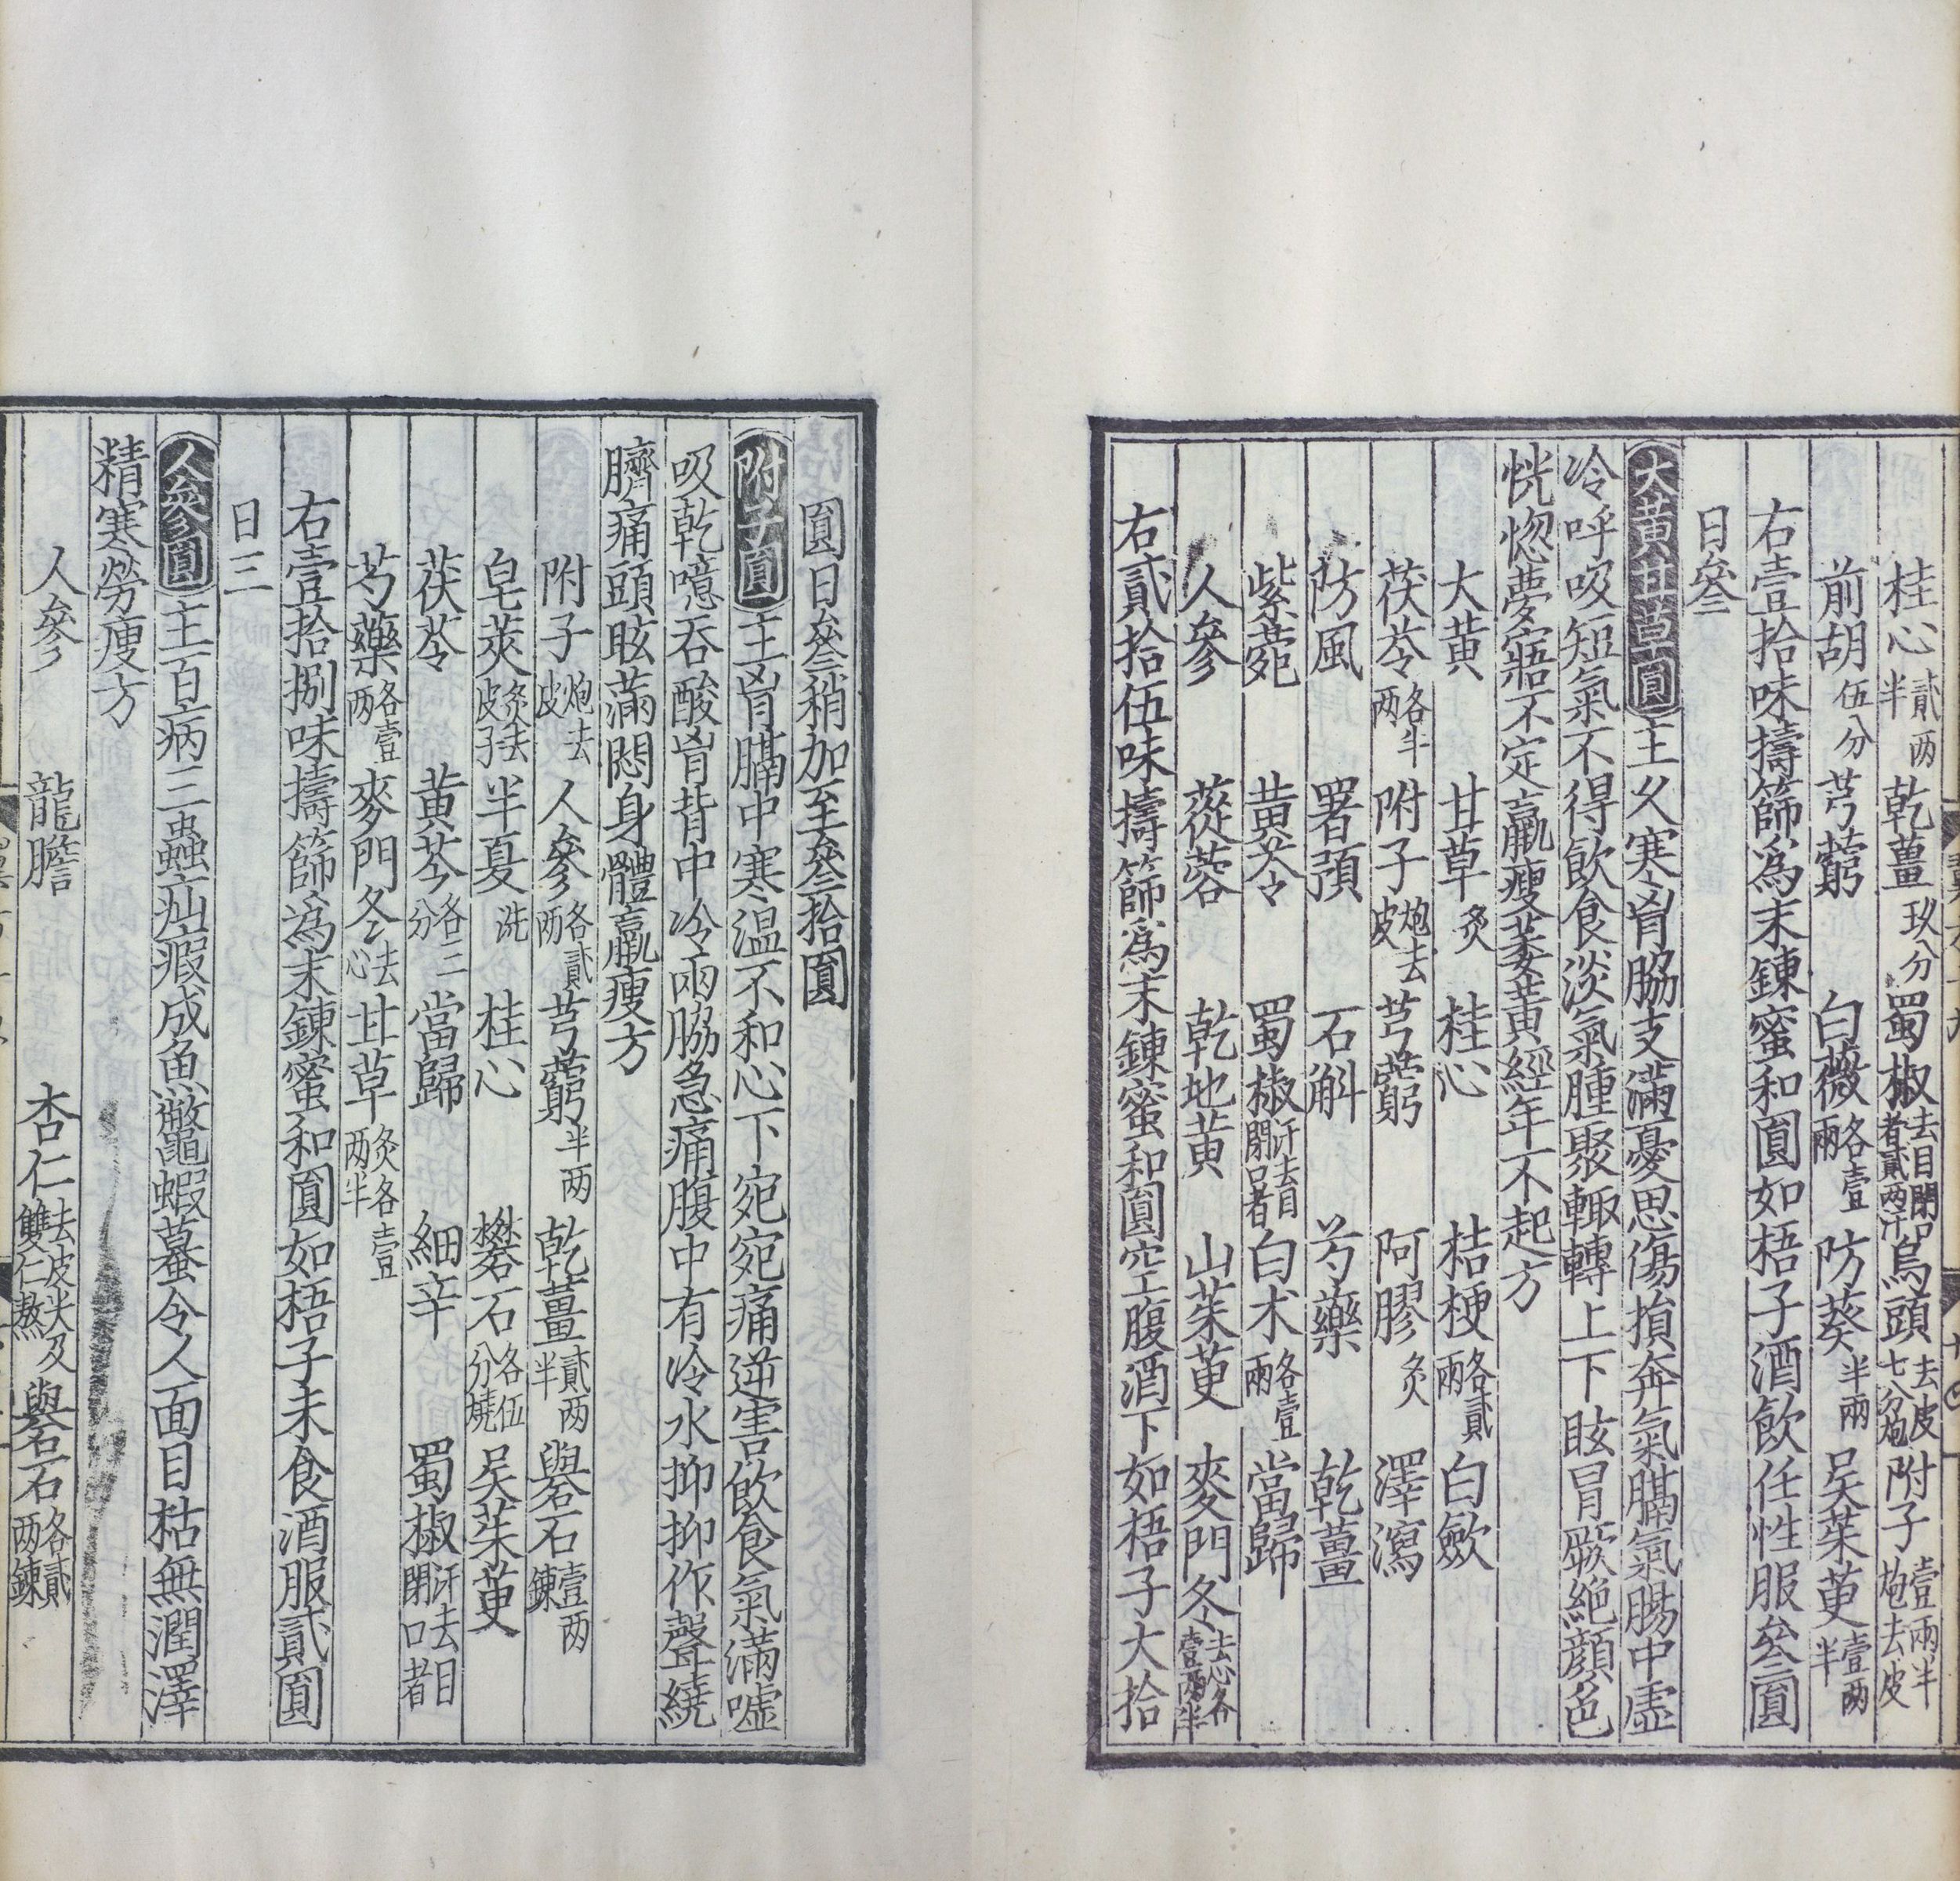 桂心貳两半 乾薑玖分 蜀椒去目閉口者貳两汗 烏頭去皮七分炮 附子壹兩半炮去皮
前胡伍分 芎藭 白薇各壹兩 防葵半兩 吴茱萸壹两半
右壹拾味擣篩為末鍊蜜和圓如梧子酒飲任性服叁圓
日叁
大黄甘草圓主久寒胷脇支滿憂思傷損奔氣膈氣腸中虛
冷呼吸短氣不得飲食淡氣腫聚輙轉上下眩冒厥絶顔色
恍惚夢寤不定羸瘦萎黄經年不起方
大黄 甘草炙 桂心 桔梗各貳兩 白歛
茯苓各半两 附子炮去皮 芎藭 阿膠炙 澤瀉
防風 署預 石斛 芍藥 乾薑
紫菀 黄芩 蜀椒汗去目閉口者 白术各壹兩 當歸
人參 蓯蓉 乾地黄 山茱萸 麥門冬去心各壹兩半
右貳拾伍味擣篩為末鍊蜜和圓空腹酒下如梧子大拾
圓日叁稍加至叁拾圓
附子圓主胷膈中寒温不和心下宛宛痛逆害飲食氣滿嘘
吸乾噫吞酸胷背中冷兩脇急痛腹中有冷水抑抑作聲繞
臍痛頭眩滿悶身體羸瘦方
附子炮去皮 人參各貳两 芎藭半两 乾薑貳两半 礜石壹两鍊
皂莢炙去皮子 半夏洗 桂心 礬石各伍分燒 吴茱萸
茯苓 黄芩各二分 當歸 細辛 蜀椒汗去目閉口者
芍藥各壹两 麥門冬去心 甘草炙各壹两半
右壹拾捌味擣篩為末鍊蜜和圓如梧子未食酒服貳圓
日三
人參圓主百病三蟲疝瘕成魚鼈蝦蟇令人面目枯無潤澤
精寒勞瘦方
人參 龍膽 杏仁去皮尖及雙仁熬 礜石各貳两鍊